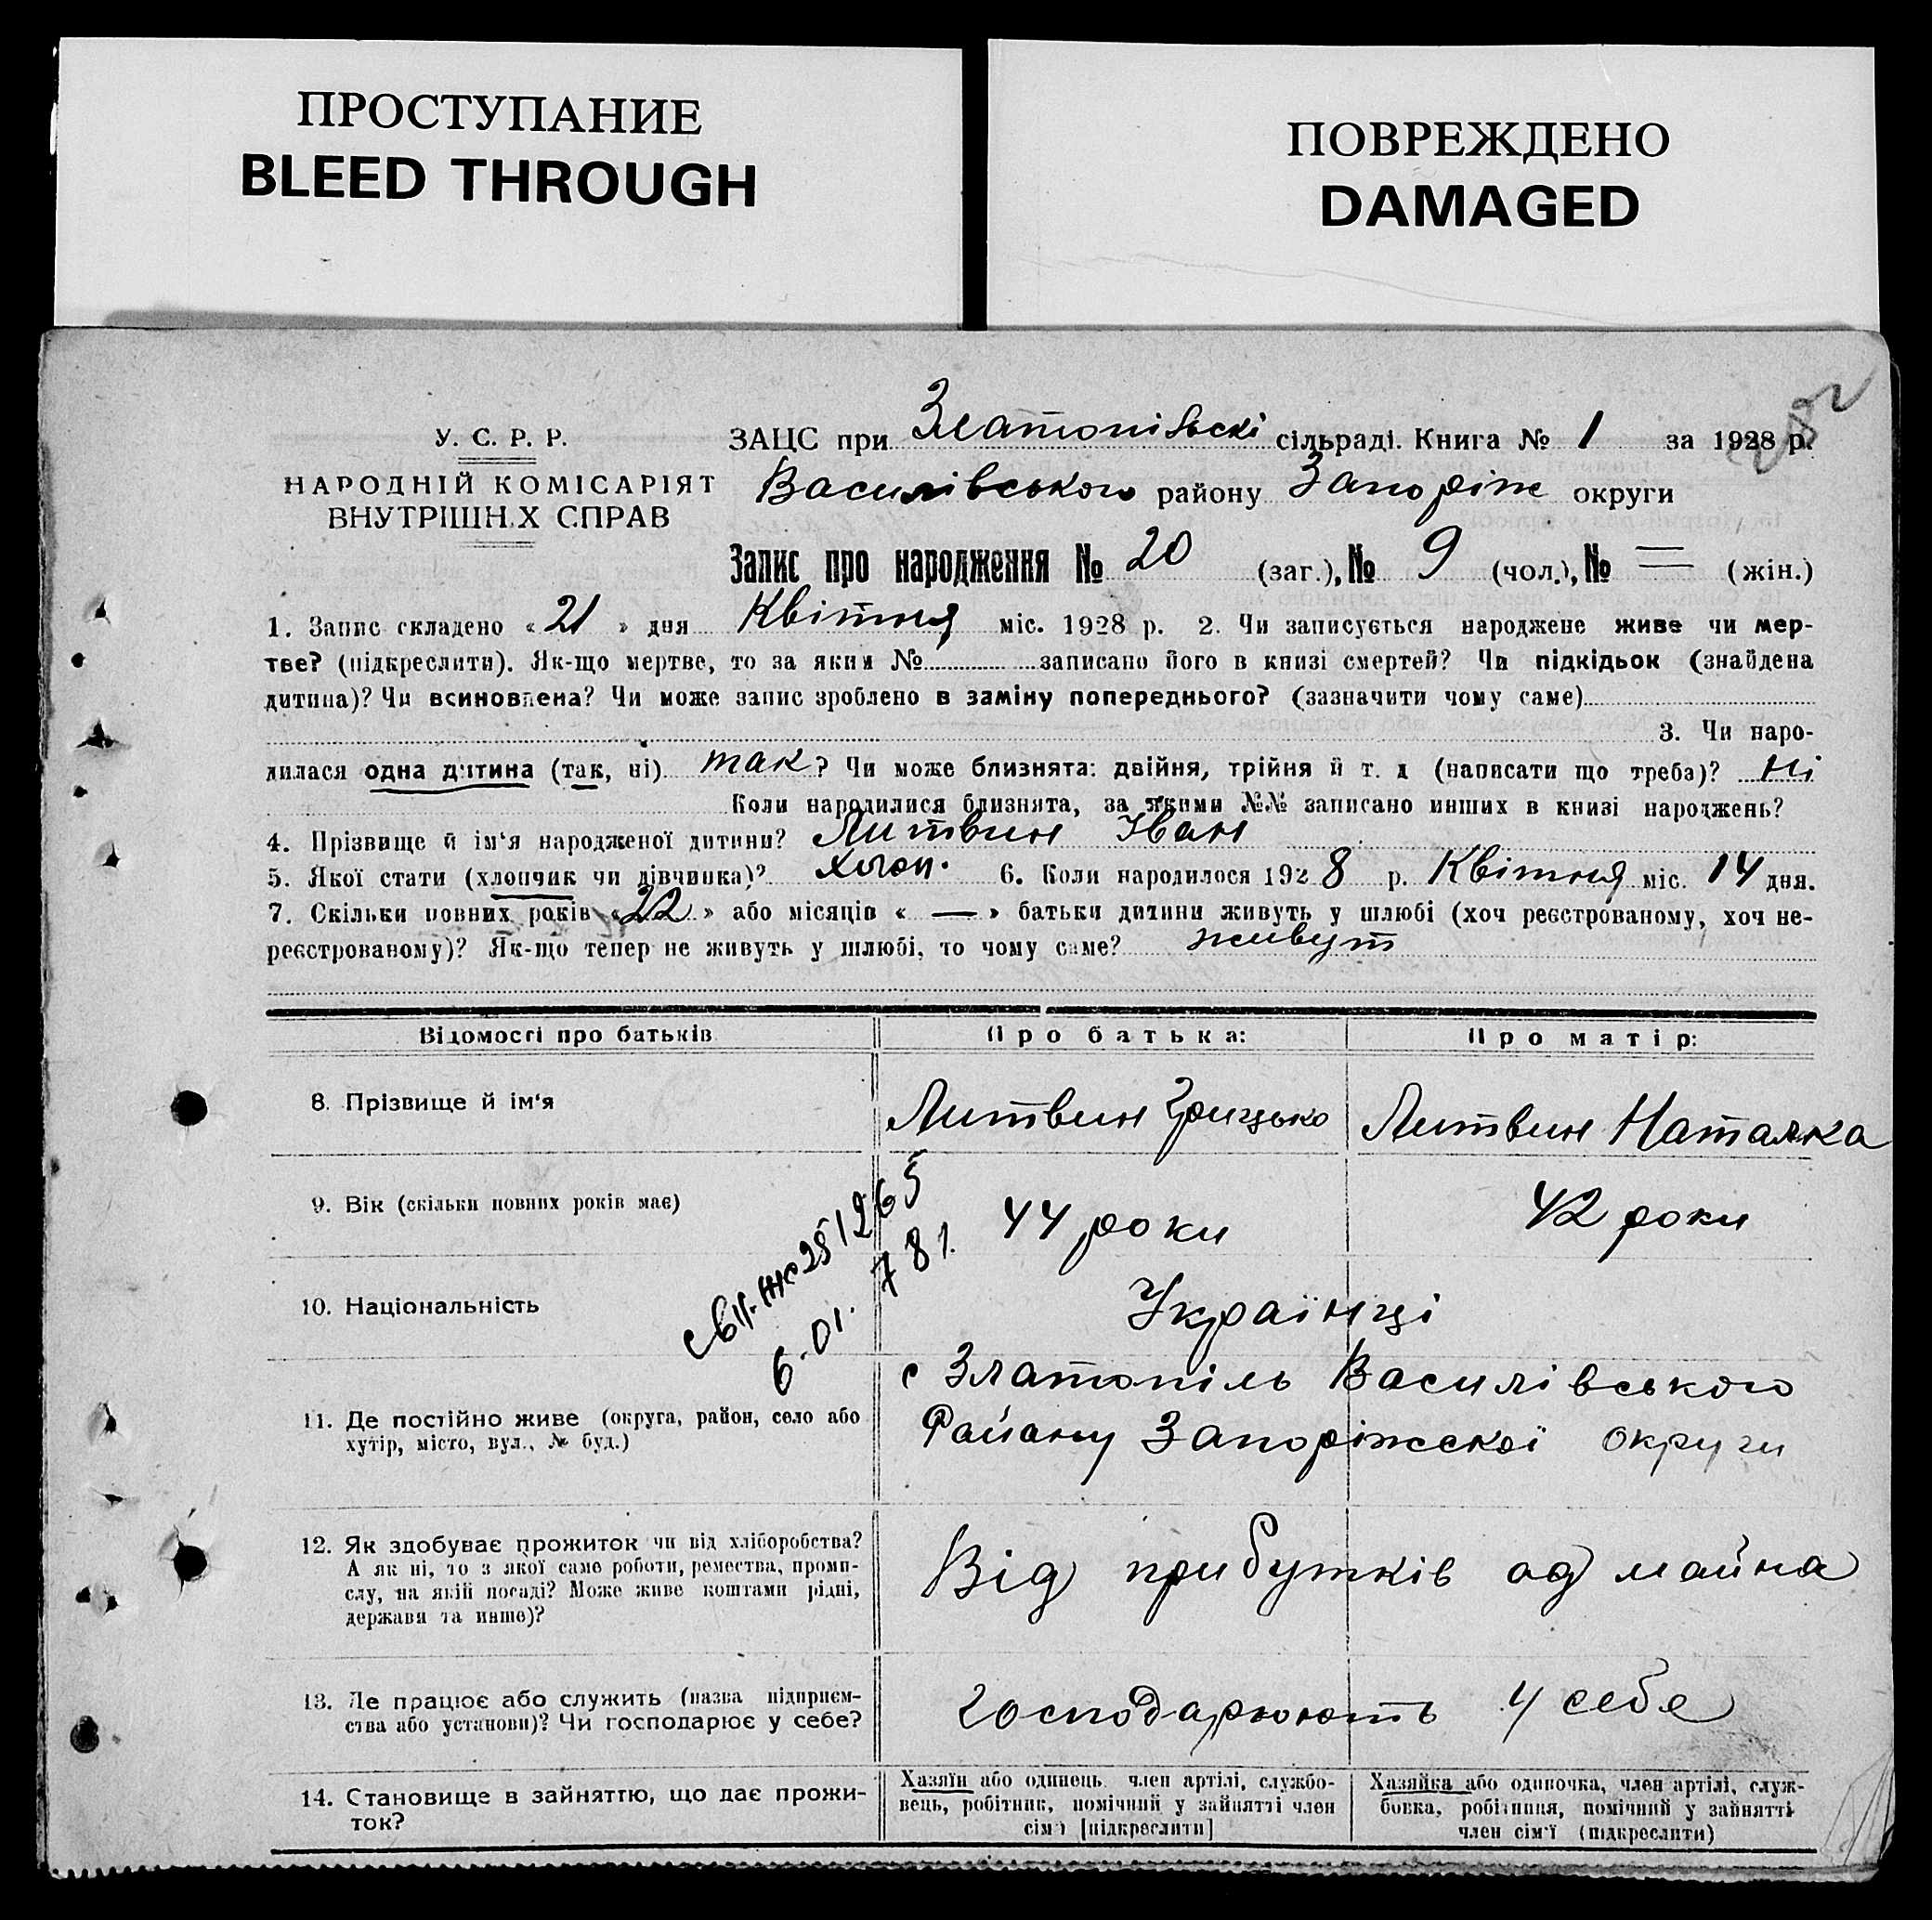 ПРОСТУПАНИЕ
BLEED THROUGH
ПОВРЕЖДЕНО
DAMAGED
У. С. Р. Р.
НАРОДНІЙ КОМІСАРІЯТ
ВНУТРІШН.Х СПРАВ
ЗАЦС при Златопільскі сільраді. Книга № 1 за 1928 р.
Василівського району Запоріж округи
Запис про народження № 20 (заг.), № 9 (чол.), № = (жін.)
1. Запис складено «21» дня Квітня міс. 1928 р. 2. Чи записується народжене живе чи мер-
тве? (підкреслити). Як-що мертве, то за яким № записано його в книзі смертей? Чи підкідьок (знайдена
дитина)? Чи всиновлена? Чи може запис зроблено в заміну попереднього? (зазначити чому саме)
3. Чи наро-
дилася одна дитина (так, ні) так? Чи може близнята: двійня, трійня й т. д (написати що треба)? Ні
Коли народилися близнята, за якими №№ записано инших в книзі народжень?
4. Прізвище й ім'я народженої дитини? Литвин Іван
5. Якої стати (хлопчик чи дівчинка)? хлоп. 6. Коли народилося 1928 р. Квітня міс. 14 дня.
7. Скільки повних років «22» або місяців « — » батьки дитини живуть у шлюбі (хоч реєстрованому, хоч не-
реєстрованому)? Як-що тепер не живуть у шлюбі, то чому саме? живут
Відомості про батьків Про батька: Про матір:
8. Прізвище й ім'я Литвин Грицько Литвин Наталка
9. Вік (скільки повних років має) 44 роки 42 роки
251265
6.01. 781.
10. Національність Українці
11. Де постійно живе (округа, район, село або
хутір, місто, вул., № буд.)
с Златопіль Василівського
Райану Запоріжскої округи
12. Як здобуває прожиток чи від хліборобства?
А як ні, то з якої саме роботи, ремества, проми-
слу, на якій посаді? Може живе коштами рідні,
держави та инше)?
Від прибутків од майна
13. Де працює або служить (назва підприєм-
ства або установи)? Чи господарює у себе?
господарюють у себе
14. Становище в зайняттю, що дає прожи-
ток?
Хазяїн або одинець, член артілі, службо-
вець, робітник, помічний у зайнятті член
сім'ї [підкреслити]
Хазяйка або одиночка, член артілі, служ-
бовка, робітниця, помічний у зайнятті
член сім'ї (підкреслити)